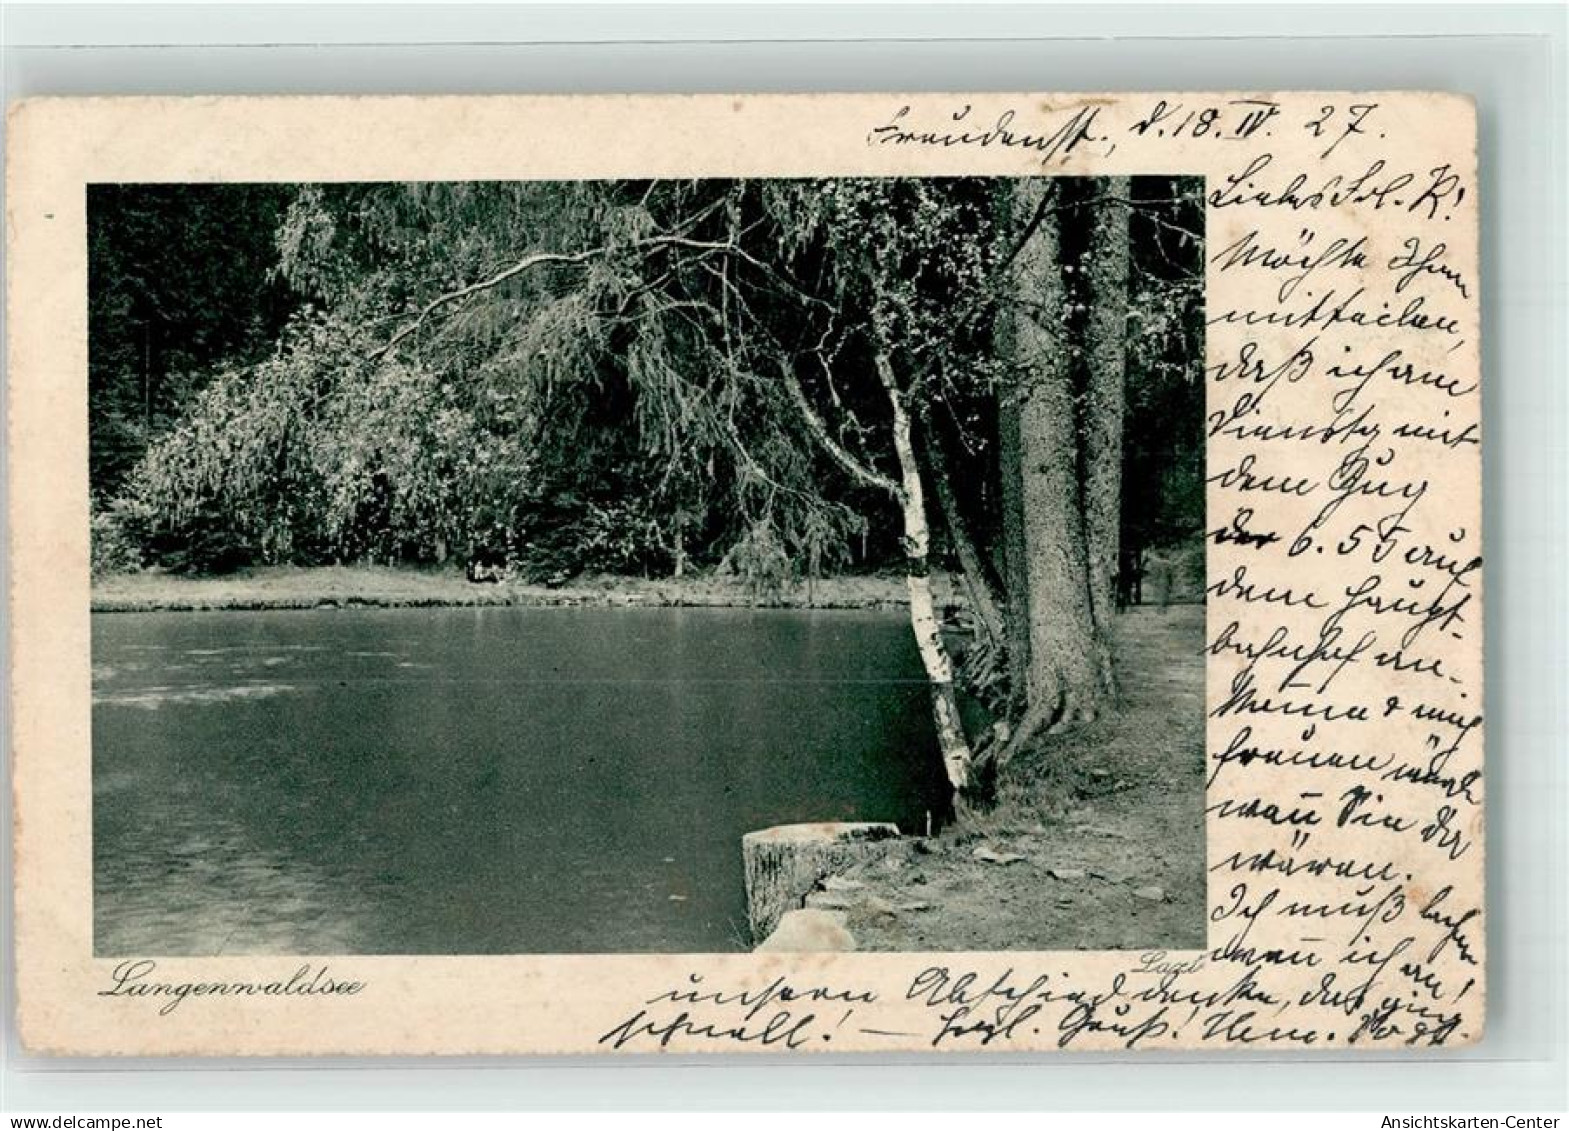 Freudenst., d. 18. IV. 27.
Liebes Frl. K!
Möchte Ihnen
mitteilen,
daß ich am
Dienstg mit
dem Zug
der 6.55 auf
dem Haupt-
bahnhof an-
Mama & mich
freuen würde
wenn Sie da
wären.
Ich muß lachen
wenn ich an
unsern Abschied denke, das ging
schnell! — Hrzl. Gruß! Herm. Vogt.
Langenwaldsee
Lazi
delcampe.net
Ansichtskarten-Center